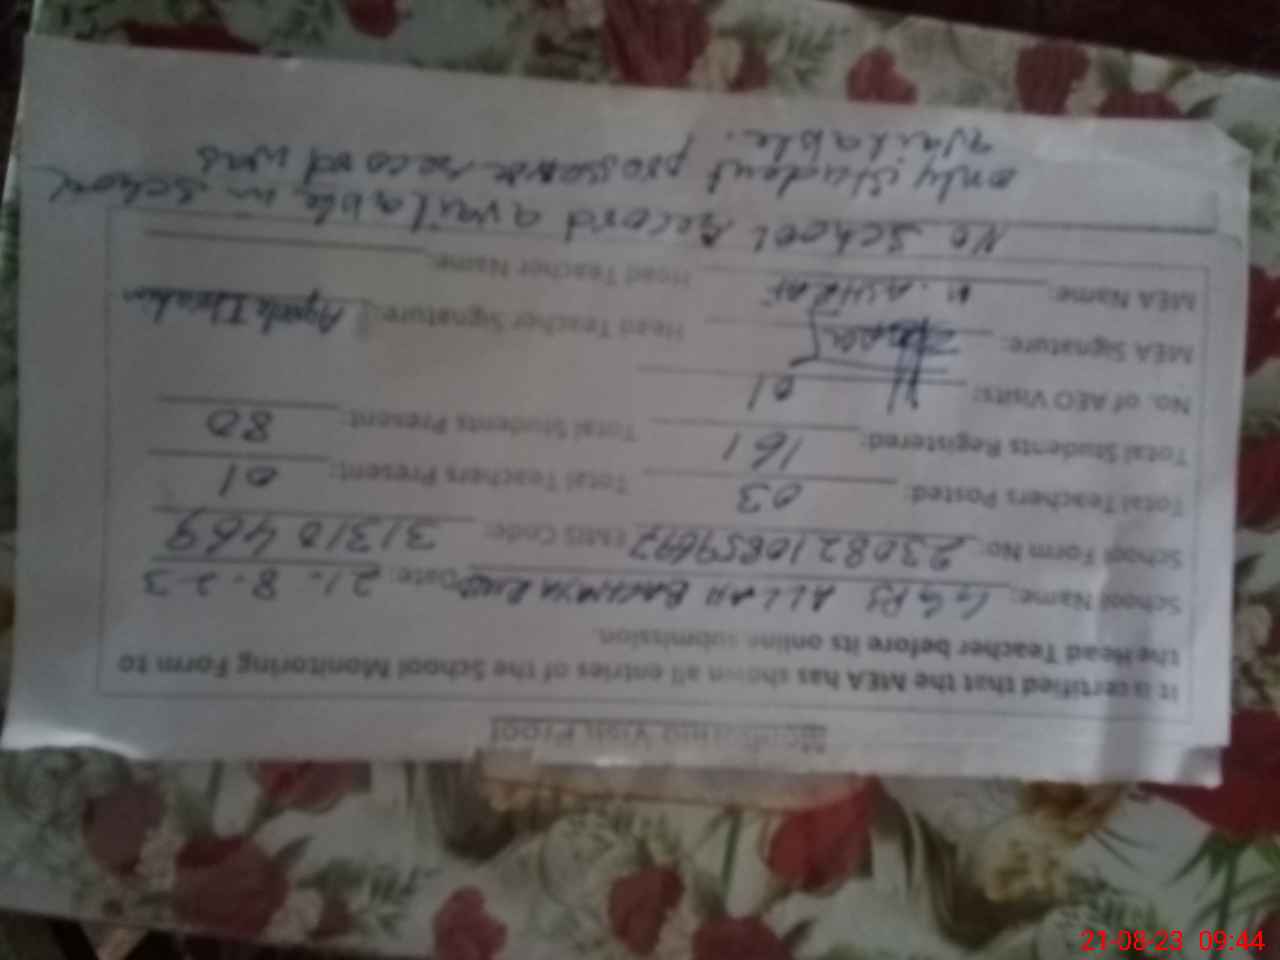 Monitoring Visit Proof
It is certified that the MEA has shown all entries of the School Monitoring Form to
the Head Teacher before its online submission.
School Name: GGPS ALLAH BACHAYA Date: 21.8.23
School Form No: 2308210859697 EMIS Code: 31310469
Total Teachers Posted: 03 Total Teachers Present: 01
Total Students Registered: 161 Total Students Present: 80
No. of AEO Visits: 01
MEA Signature: Head Teacher Signature:
MEA Name: M. ASHRAF Head Teacher Name:
No School Record available in School
only student record was
available.
21-08-23 09:44